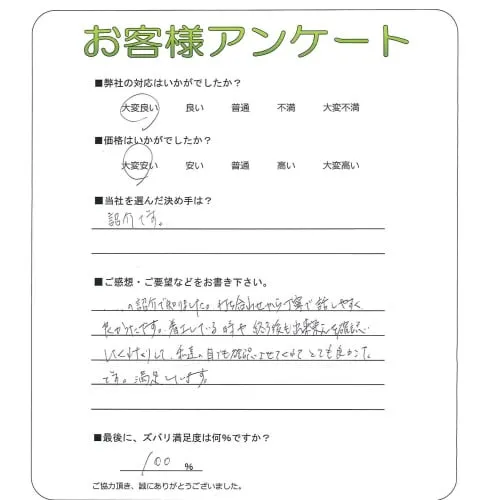 お客様アンケート
■弊社の対応はいかがでしたか？
大変良い 良い 普通 不満 大変不満
■価格はいかがでしたか？
大変安い 安い 普通 高い 大変高い
■当社を選んだ決め手は？
紹介です。
■ご感想・ご要望などをお書き下さい。
の紹介で知りました。打ち合わせから丁寧で話しやすく
良かったです。着工している時や終了後も出来栄えを確認
してくれたりして、私達の目でも確認させてくれてとても良かった
です。満足しています。
■最後に、ズバリ満足度は何％ですか？
100 %
ご協力頂き、誠にありがとうございました。